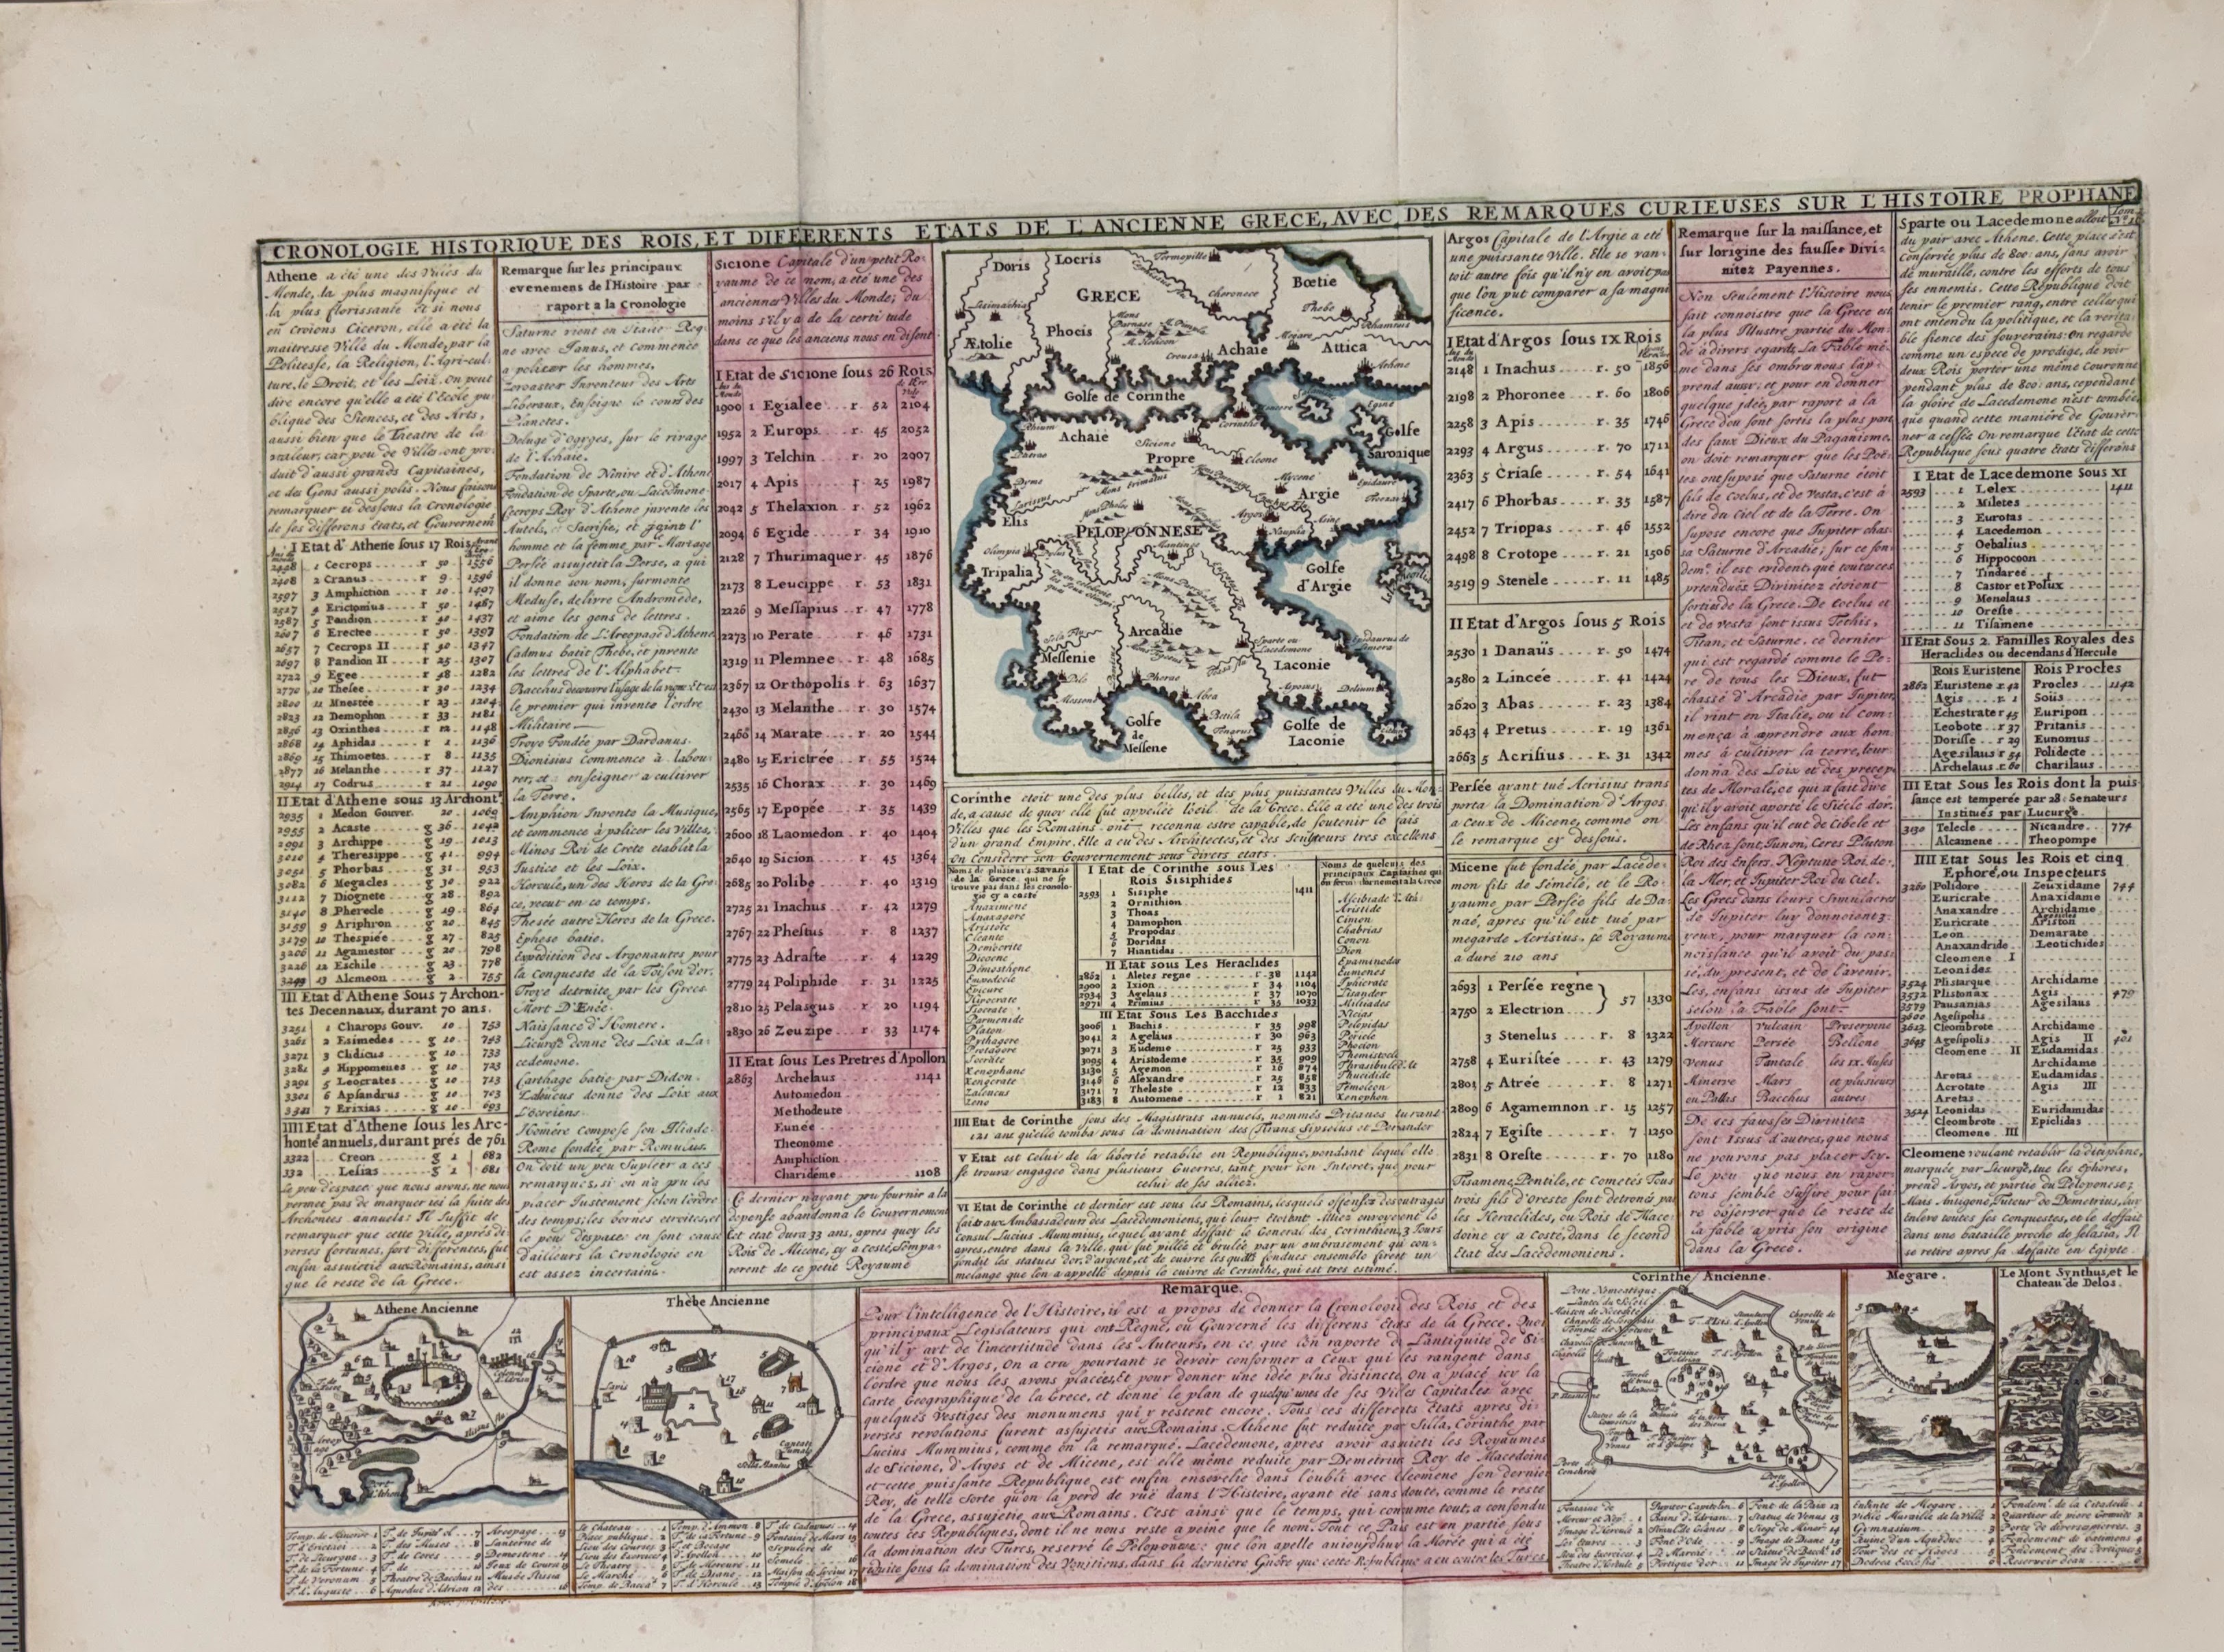 CRONOLOGIE HISTORIQUE DES ROIS, ET DIFFERENTS ETATS DE L'ANCIENNE GRECE, AVEC DES REMARQUES CURIEUSES SUR L'HISTOIRE PROPHANE
Athene a été une des Villes du
Monde, la plus magnifique et
la plus florissante Et si nous
en croions Ciceron, elle a eté la
maitresse Ville du Monde, par la
Politesse, la Religion, l'Agri-cul-
ture, le Droit, et les Loix. On peut
dire encore qu'elle a eté l'Ecole pu-
blique des Siences, et des Arts,
aussi bien que le Theatre de la
valeur, car peu de Villes ont pro-
duit d'aussi grands Capitaines,
et des Gens aussi polis. Nous faisons
remarquer ci dessous la Cronologie
de ses differens états, et Gouvernem
I Etat d'Athene sous 17 Rois
1 Cecrops r 50 1556
2 Cranus r 9
2597 3 Amphiction r 10 1497
2517 4 Erictonius r 50 1487
2587 5 Pandion r 40 1437
2607 6 Erectee r 50 1397
2657 7 Cecrops II r 40 1347
2697 8 Pandion II r 25 1307
2722 9 Egee r 48 1282
2770 10 Thesee r 30 1234
2800 11 Mnestée r 23 1204
2823 12 Demophon r 33 1181
2856 13 Oxinthes r 12 1148
2868 14 Aphidas r 1 1136
2869 15 Thimoetes r 8 1135
2877 16 Melanthe r 37 1127
2914 17 Codrus r 21 1090
II Etat d'Athene sous 13 Archont
2935 1 Medon Gouver. 20 1069
2955 2 Acaste g 36 1049
2991 3 Archippe g 19 1013
3010 4 Theresippe g 41 994
3051 5 Phorbas g 31 953
3082 6 Megacles g 30 922
3112 7 Diognete g 28 892
3140 8 Pherecle g 19 864
3159 9 Ariphron g 20 845
3179 10 Thespiée g 27 825
3206 11 Agamestor g 20 798
3226 12 Eschile g 23 778
3249 13 Alcmeon g 2 755
III Etat d'Athene Sous 7 Archon-
tes Decennaux, durant 70 ans.
3251 1 Charops Gouv. 10 753
3261 2 Esimedes g 10 743
3271 3 Clidicus g 10 733
3281 4 Hippomenes g 10 723
3291 5 Leocrates g 10 713
3301 6 Apsandrus g 10 703
7 Erixias g 10 693
IIII Etat d'Athene sous les Arc-
honte annuels, durant prés de 761
3322 Creon g 1 682
332 Lesias g 1 681
Le peu d'espace que nous avons, ne nous
permet pas de marquer ici la suite des
Archontes annuels: Il suffit de
remarquer que cette Ville, aprés di-
verses fortunes, fort differentes, fut
enfin assujetie aux Romains, ainsi
que le reste de la Grece.
Remarque sur les principaux
evenemens de l'Histoire par
raport a la Cronologie
Saturne vient en Italie Reg-
ne avec Janus, et commence
a policer les hommes.
Zoroaster Inventeur des Arts
Liberaux, Enseigne le cours des
Planetes.
Deluge d'Ogyges, sur le rivage
de l'Achaïe.
Fondation de Ninive et d'Athene
Fondation de Sparte, ou Lacedmone
Cecrops Roy d'Athene invente les
Autels, Sacrifie, et joint l'
homme et la femme par le Mariage
Persée assujetit la Perse, a qui
il donne son nom, surmonte
Meduse, delivre Andromede,
et aime les gens de lettres.
Fondation de L'Areopage d'Athene
Cadmus batit Thebe, et invente
les lettres de l'Alphabet
Bacchus decouvre l'usage de la vigne Et est
le premier qui invente l'ordre
Militaire
Troye Fondée par Dardanus.
Dionisius commence à labou-
rer, et enseigner a cultiver
la Terre.
Amphion Invente la Musique,
et commence à policer les Villes,
Minos Roi de Crete etablit la
Justice et les Loix.
Hercule, un des Heros de la Gre-
ce, vecut en ce temps.
Thesée autre Heros de la Grece.
Ephese batie.
Expedition des Argonautes pour
la conqueste de la Toison d'or.
Troye detruite par les Grecs
Mort D'Enée.
Naissance d'Homere.
Licurge donne des Loix a La-
cedemone.
Carthage batie par Didon.
Zaleucus donne des Loix aux
Locriens.
Homére compose son Iliade
Rome fondée par Romulus.
On doit un peu Supleer a ces
remarques, si on n'a pu les
placer Justement selon l'ordre
des temps; les bornes etroites, et
le peu d'espace en sont cause
d'ailleurs la Cronologie en
est assez incertaine.
Sicione Capitale d'un petit Ro-
yaume de ce nom, a eté une des
anciennes Villes du Monde; du
moins s'il y a de la certitude
dans ce que les anciens nous en disent
I Etat de Sicione sous 26 Rois
1900 1 Egialee r 52 2104
1952 2 Europs r 45 2052
1997 3 Telchin r 20 2907
2017 4 Apis r 25 1987
2042 5 Thelaxion r 52 1962
2094 6 Egide r 34 1910
2128 7 Thurimaque r 45 1876
2173 8 Leucippe r 53 1831
2226 9 Messapius r 47 1778
2273 10 Perate r 46 1731
2319 11 Plemnee r 48 1685
2367 12 Orthopolis r 63 1637
2430 13 Melanthe r 30 1574
2466 14 Marate r 20 1544
2480 15 Erictrée r 55 1524
2535 16 Chorax r 30 1469
2565 17 Epopée r 35 1439
2600 18 Laomedon r 40 1404
2640 19 Sicion r 45 1364
2685 20 Polibe r 40 1319
2725 21 Inachus r 42 1279
2767 22 Phestus r 8 1237
2775 23 Adraste r 4 1229
2779 24 Poliphide r 31 1225
2810 25 Pelasgus r 20 1194
2830 26 Zeuzipe r 33 1174
II Etat sous Les Pretres d'Apollon
2863 Archelaus 1141
Automedon
Methodeute
Eunée
Theonome
Amphiction
Charidéme 1108
Ce dernier n'ayant peu fournir a la
depense abandonna le Gouvernement
Cet etat dura 33 ans, apres quoy les
Rois de Micene, cy a costé, s'empa-
rerent de ce petit Royaume
Doris
Locris
Termopylle
GRECE
Cheronece
Bœtie
Thebe
Rhamnus
Lisimachia
Phocis
Mons Parnasse
M. Helicon
Ætolie
Crousa
Achaie
Megare
Attica
Athene
Golfe de Corinthe
Egine
Corinthe
Golfe Saronique
Rhium
Achaie Propre
Sicione
Patras
Cleone
Mycene
Argie
Epidaure
Dyme
Mons Erimatus
Elis
Argos
Nauplia
Asine
PELOPONNESE
Mantinea
Olimpia
Tripalia
Golfe d'Argie
Arcadie
Sparte ou Lacedemone
Epidaurus de Limera
Messenie
Laconie
Pherae
Abea
Asopus
Delium
Betila
Golfe de Messene
Golfe de Laconie
Corinthe etoit une des plus belles, et des plus puissantes Villes du Mon-
de, a cause de quoy elle fut appellée l'oeil de la Grece. Elle a eté une des trois
Villes que les Romains ont reconnu estre capable, de soutenir le fais
d'un grand Empire. Elle a eu des Architectes, et des Sculpteurs tres excellens
On Considere son Gouvernement sous divers etats.
Noms de plusieurs Savans
de la Grece, qui ne se
trouve pas dans les cronolo-
gie cy a costé
Anaximene
Anaxagore
Aristote
Cleante
Democrite
Diogene
Démosthene
Empedocle
Epicure
Hipocrate
Isocrate
Parmenide
Platon
Pithagore
Protagore
Socrate
Xenophane
Xenocrate
Zaleucus
Zeno
I Etat de Corinthe sous Les
Rois Sisiphides
2593 1 Sisiphe 1411
2 Ornithion
3 Thoas
4 Damophon
5 Propodas
6 Doridas
7 Hiantidas
II Etat sous Les Heraclides
2862 1 Aletes regne r 38 1142
2900 2 Ixion r 34 1104
2934 3 Agelaus r 37 1070
2971 4 Primius r 35 1033
III Etat Sous Les Bacchides
3006 1 Bachis r 35 998
3041 2 Agelaus r 30 963
3071 3 Eudeme r 25 933
3095 4 Aristodeme r 35 909
3130 5 Agemon r 16 874
3146 6 Alexandre r 25 858
3171 7 Theleste r 12 833
3183 8 Automene r 1 821
Noms de quelques des
principaux Capitaines qui
Alcibiade
Aristide
Cimon
Chabrias
Conon
Dion
Epaminodas
Eumenes
Iphicrate
Lisander
Miltiades
Nicias
Pelopidas
Pericle
Phocion
Themistocle
Thrasibule
Thucidide
Timoleon
Xenophon
IIII Etat de Corinthe sous des Magistrats annuels, nommés Pritanes durant
121 ans qu'elle tomba sous la domination des Tirans, Sipselus et Periander
V Etat est Celui de la liberté retablie en Republique, pendant lequel elle
se trouva engagée dans plusieurs Guerres, tant pour son Interet, que pour
celui de ses aliéez.
VI Etat de Corinthe et dernier est sous les Romains, lesquels offensez des outrages
faits aux Ambassadeurs des Lacedemoniens, qui leur étoient Alliez envoyerent le
Consul Lucius Mummius, lequel ayant deffait le General des Corinthien, 3 Jours
apres, entre dans la Ville, qui fut pillée et brulée par un ambrasement qui con-
fondit les statues d'or, d'argent, et de cuivre lesquels fondues ensemble firent un
melange que l'on a appellé depuis le cuivre de Corinthe, qui est tres estimé.
Argos Capitale de l'Argie a eté
une puissante Ville. Elle se van-
toit autre fois qu'il n'y en avoit pas
que l'on put comparer a sa magni
ficence.
I Etat d'Argos sous IX Rois
2148 1 Inachus r. 50 1856
2198 2 Phoronee r. 60 1806
2258 3 Apis r. 35 1746
2293 4 Argus r. 70 1711
2363 5 Criase r. 54 1641
2417 6 Phorbas r. 35 1587
2452 7 Triopas r. 46 1552
2498 8 Crotope r. 21 1506
2519 9 Stenele r. 11 1485
II Etat d'Argos sous 5 Rois
2530 1 Danaüs r. 50 1474
2580 2 Lincée r. 41 1424
2620 3 Abas r. 23 1384
2643 4 Pretus r. 19 1361
2663 5 Acrisius r. 31 1342
Persée ayant tué Acrisius trans
porta la Domination d'Argos
a ceux de Micene, comme on
le remarque cy dessous.
Micene fut fondée par Lacede-
mon fils de Sémélé, et le Ro-
yaume par Persée fils de Da-
naé, apres qu'il eut tué par
megarde Acrisius. ce Royaume
a duré 210 ans
2693 1 Persée regne
57 1330
2750 2 Electrion
3 Stenelus r. 8 1322
2758 4 Euristée r. 43 1279
2801 5 Atrée r. 8 1271
2809 6 Agamemnon r. 15 1257
2824 7 Egiste r. 7 1250
2831 8 Oreste r. 70 1180
Tisamene, Pentile, et Cometés Tous
trois fils d'Oreste sont detronés par
les Heraclides, ou Rois de Mace-
doine cy a costé, dans le second
Etat des Lacedemoniens.
Remarque sur la naissance, et
sur lorigine des fausses Divi-
nitez Payennes.
Non Seulement l'Histoire nous
fait connoistre que la Grece est
la plus Illustre partie du Mon-
de à divers egards, La Fable mê-
me dans ses ombres nous l'ap-
prend aussi; et pour en donner
quelque idée, par raport a la
Grece d'ou sont sortis la plus part
des faux Dieux du Paganisme.
on doit remarquer que les Poë-
tes ont suposé que Saturne étoit
fils de Coelus, et de Vesta, c'est à
dire du Ciel et de la Terre. On
supose encore que Jupiter chas-
sa Saturne d'Arcadie; sur ce fon-
dem. il est evident, que toutes ces
prtenduës Divinitez étoient
sorties de la Grece. De Coelus et
de Vesta sont issus Tethis,
Titan, et Saturne. ce dernier
qui est regardé comme le Pe-
re de tous les Dieux, fut
chassé d'Arcadie par Jupiter,
il vint en Italie, ou il com-
mença à aprendre aux hom-
mes à cultiver la terre, leur
donna des Loix et des precep-
tes de Morale, ce qui a fait dire
qu'il y avoit aporté le Siécle d'or.
Les enfans qu'il eut de Cibele et
de Rhea sont, Junon, Ceres, Pluton
Roi des Enfers, Neptune Roi de
la Mer, et Jupiter Roi du Ciel.
Les Grecs dans leurs Simulacres
de Jupiter luy donnoient 3
yeux, pour marquer la con-
noissance qu'il avoit du pas-
sé, du present, et de l'avenir.
Les enfans issus de Jupiter
selon la Fable sont
Apollon Vulcain Proserpine
Mercure Persée Bellone
Venus Tantale les IX Muses
Minerve Mars et plusieurs
ou Pallas Bacchus autres
De ces fausses Divinitez
sont Issus d'autres, que nous
ne pouvons pas placer Icy.
Le peu que nous en rapor-
tons semble suffire pour fai-
re observer que le reste de
la fable a pris son origine
dans la Grece.
Sparte ou Lacedemone alloit
du pair avec Athene. Cette place s'est
Conservée plus de 800: ans, sans avoir
de muraille, contre les efforts de tous
ses ennemis. Cette Republique doit
tenir le premier rang, entre celles qui
ont entendu la politique, et la verita-
ble sience des souverains. On regarde
comme un espece de prodige, de voir
deux Rois porter une même Couronne
pendant plus de 800: ans, cependant
la gloire de Lacedemone n'est tombée
que quand cette maniére de Gouver-
ner a cessée On remarque l'Etat de cette
Republique sous quatre états differens
I Etat de Lacedemone Sous XI
2593 1 Lelex 1411
2 Miletes
3 Eurotas
4 Lacedemon
5 Oebalius
6 Hippocoon
7 Tindaree
8 Castor et Polux
9 Menelaus
10 Oreste
11 Tisamene
II Etat Sous 2 Familles Royales des
Heraclides ou decendans d'Hercule
Rois Euristene Rois Procles
2862 Euristene r 42 Procles 1142
Agis r. 1 Soüs
Echestrate r 45 Euripon
Leobote r 37 Pritanis
Dorisse r 29 Eunomus
Agesilaus r 54 Polidecte
Archelaus r 60 Charilaus
III Etat Sous les Rois dont la puis-
sance est temperée par 28: Senateurs
Instituës par Lucurge.
3130 Telecle Nicandre 774
Alcamene Theopompe
IIII Etat Sous les Rois et cinq
Ephore, ou Inspecteurs
3260 Polidore Zeuxidame 744
Euricrate Anaxidame
Anaxandre Archidame
Euricrate Ariston
Leon Demarate
Anaxandride Leotichides
Cleomene I
Leonidas
3524 Plistarque Archidame
3532 Plistonax Agis 479
3579 Pausanias Agesilaus
3600 Agesipolis
3623 Cleombrote Archidame
3643 Agesipolis Agis II 401
Cleomene II Eudamidas
Archidame
Aretas Eudamidas
Acrotate Agis III
Aretas
3524 Leonidas Euridamidas
Cleombrote Epiclidas
Cleomene III
Cleomene voulant retablir la discipline,
marquée par Licurge, tue les Ephores,
prend Argos, et partie du Peloponese;
Mais Antigone, Tuteur de Demetrius, luy
Enleve toutes ses conquestes, et le deffait
dans une bataille proche de Selasia, Il
se retire apres sa defaite en Egipte
Athene Ancienne
Temp. de Minerve 1
T. d'Erictoni 2
T. de Licurgue 3
T. de la Fortune 4
T. d'Auguste 6
T. de Jupiter Ol. 7
T. des Muses 8
T. de Ceres 9
Theatre de Bacchus 11
Aqueduc d'Adrian 12
Areopage 13
Lanterne de
Demostene 14
Avec privilege.
Thèbe Ancienne
Le Chateau 1
Place publique 2
Lieu des Courses 3
Lieu des Exercices 4
Le Theatre 5
Le Marché 6
Temp. de Bacc. 7
Temp. d'Ammon 8
T. de la Fortune 9
T. et Bocage
d'Apollon 10
T. de Mercure 11
T. de Diane 12
T. d'Hercule 13
T. de Cadmus 14
Fontaine de Mars 15
Sepulcre de
Semele 16
Temple d'Apolon 18
Remarque.
Pour l'intelligence de l'Histoire, il est a propos de donner la Cronologie des Rois et des
principaux Legislateurs qui ont Regné, ou Gouverné les differens Etats de la Grece. Quoi
qu'il y ayt de l'incertitude dans les Auteurs, en ce que l'on raporte de L'antiquité de Si-
cione et d'Argos, On a cru pourtant se devoir conformer a Ceux qui les rangent dans
l'ordre que nous les avons placées, Et pour donner une idée plus distincte, On a placé icy la
Carte Geographique de la Grece, et donné le plan de quelqu'unes de ses Villes Capitales avec
quelques vestiges des monumens qui y restent encore. Tous ces differents Etats apres di-
verses revolutions furent assujetis aux Romains. Athene fut reduite par Silla, Corinthe par
Lucius Mummius, comme on la remarqué. Lacedemone, apres avoir assujeti les Royaumes
de Sicione, d'Argos et de Micene, est elle même reduite par Demetrius Roy de Macedoine
et cette puissante Republique est enfin ensevelie dans l'oubli avec Cleomene son dernier
Roy, de telle sorte qu'on la perd de vuë dans l'Histoire, ayant été sans doute, comme le reste
de la Grece, assujetie aux Romains. C'est ainsi que le temps, qui consume tout, a confondu
toutes ces Republiques, dont il ne nous reste a peine que le nom. Tout ce Païs est en partie sous
la domination des Turcs, reservé le Peloponnese que l'on apelle aujourd'huy la Morée qui a été
reduite sous la domination des Venitiens, dans la derniere Guerre que cette Republique a eu contre les Turcs
Corinthe Ancienne.
Chapelle de Venus
Fontaine de
Mercur et Nep. 1
Image d'Hercule 2
Jeu des Exercices 4
Jupiter Capitolin 6
Bains d'Adrian 7
Simul. de Dianes 8
Pont d'Ode 9
Le Marché 10
Portique d'or 11
Font de la Paix 12
Statue de Venus 13
Siege de Miner 14
Image de Diane 15
Statue de Bacch. 16
Image de Jupiter 17
Megare.
Enfente de Megare 1
Vielle Muraille de la Ville 2
Gymnasium 3
Ruine d'un Aqueduc 4
Tour des et Naees 5
Dodeca Ecclesia 6
Le Mont Synthus, et le
Chateau de Delos.
Fondem. de la Citadelle 1
Quartier de piere Granite 2
Porte de diverses pierres 3
Fondement de batimens 4
Fondement des Portiques 5
Reservoir d'eau 6